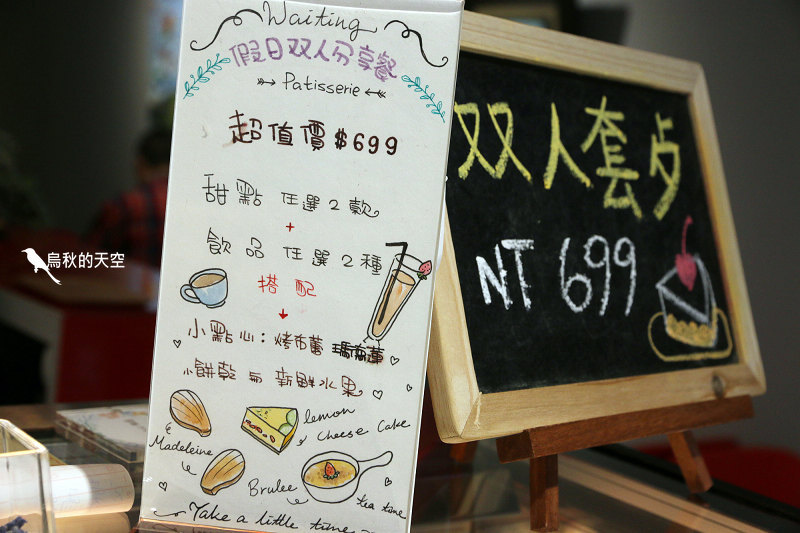 Waiting
假日双人分享餐
Patisserie
超值價$699
甜點 任選2款
+
飲品 任選2種
搭配
小點心:烤布蕾
小餅乾 與 新鮮水果
lemon
cheese cake
Madeleine
Brulee
tea time
Take a little time
双人套歺
NT 699
烏秋的天空